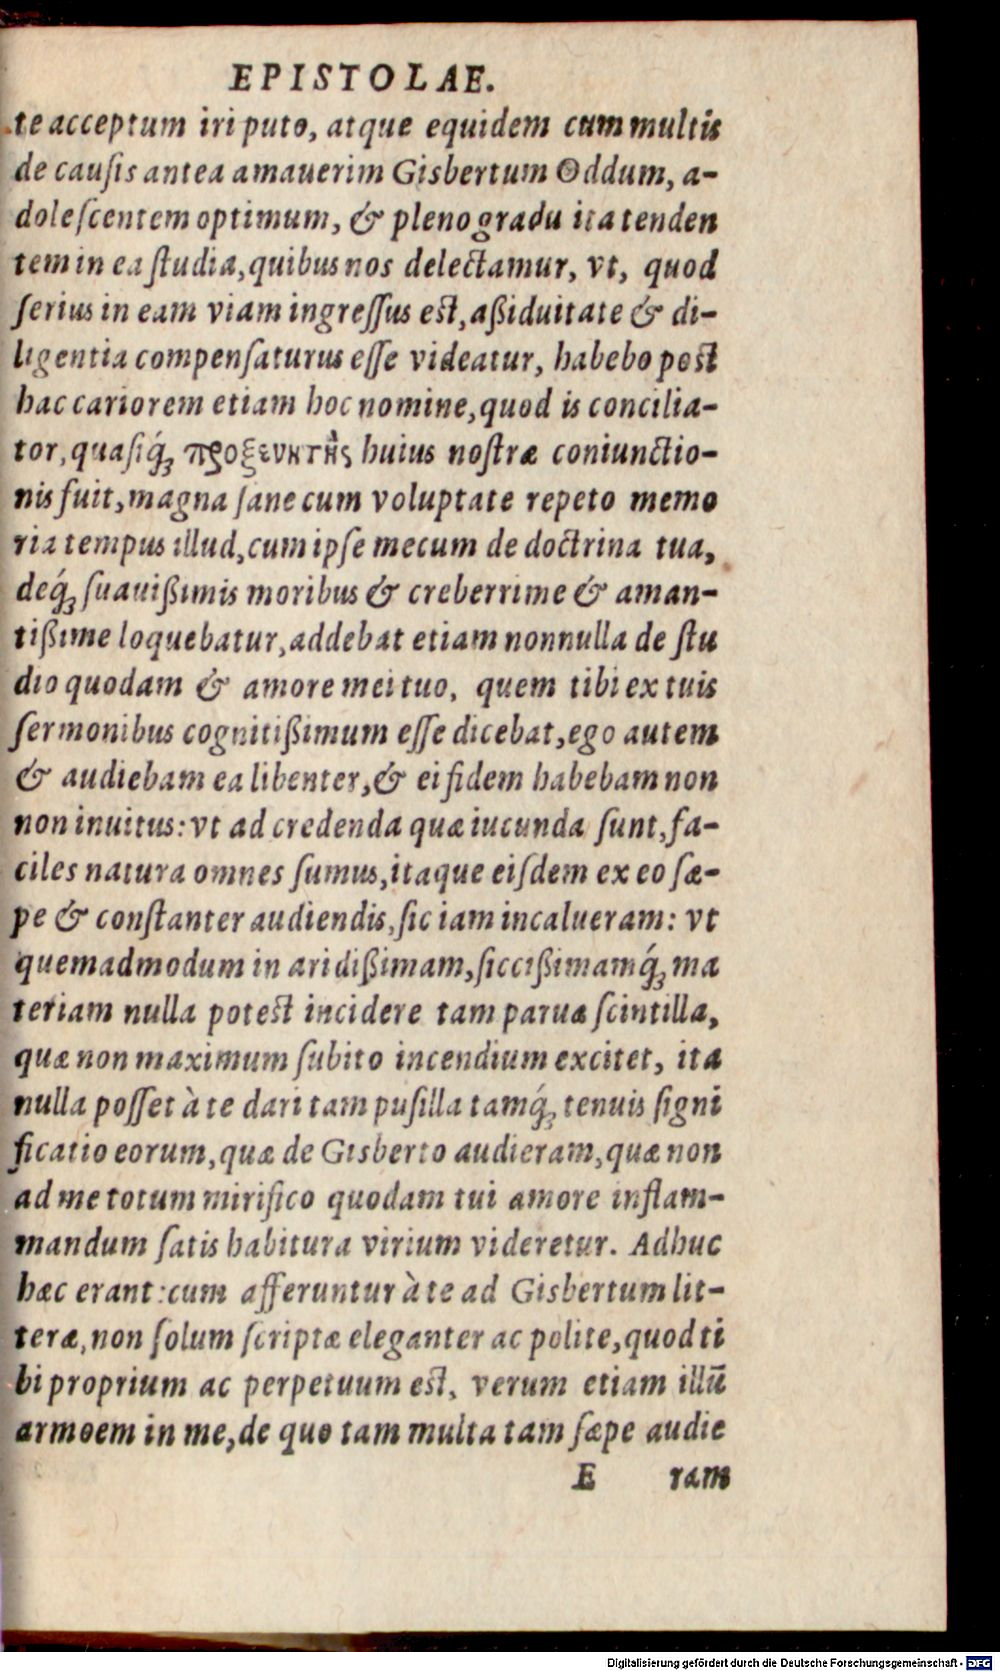 EPISTOLAE.
te acceptum iri puto, atque equidem cum multis
de causis antea amauerim Gisbertum Oddum, a-
dolescentem optimum, & pleno gradu ita tenden
tem in ea studia, quibus nos delectamur, vt, quod
serius in eam viam ingressus est, aßiduitate & di-
ligentia compensaturus esse videatur, habebo post
hac cariorem etiam hoc nomine, quod is concilia-
tor, quasiq́; προξενητὴς huius nostræ coniunctio-
nis fuit, magna sane cum voluptate repeto memo
ria tempus illud, cum ipse mecum de doctrina tua,
deq́; suauißimis moribus & creberrime & aman-
tißime loquebatur, addebat etiam nonnulla de stu
dio quodam & amore mei tuo, quem tibi ex tuis
sermonibus cognitißimum esse dicebat, ego autem
& audiebam ea libenter, & ei fidem habebam non
non inuitus: vt ad credenda quæ iucunda sunt, fa-
ciles natura omnes sumus, itaque eisdem ex eo sæ-
pe & constanter audiendis, sic iam incalueram: vt
quemadmodum in aridißimam, siccißimamq́; ma
teriam nulla potest incidere tam paruæ scintilla,
quæ non maximum subito incendium excitet, ita
nulla posset à te dari tam pusilla tamq́; tenuis signi
ficatio eorum, quæ de Gisberto audieram, quæ non
ad me totum mirifico quodam tui amore inflam-
mandum satis habitura virium videretur. Adhuc
hæc erant: cum afferuntur à te ad Gisbertum lit-
teræ, non solum scriptæ eleganter ac polite, quod ti
bi proprium ac perpetuum est, verum etiam illũ
armoem in me, de quo tam multa tam sæpe audie
E ram
Digitalisierung gefördert durch die Deutsche Forschungsgemeinschaft - DFG